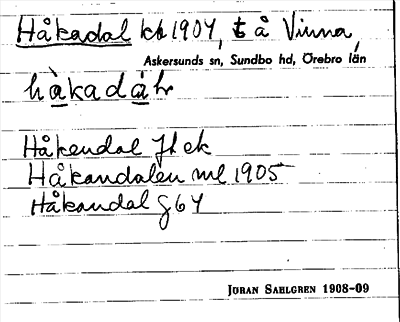 Håkadal kb 1904, t å Vinna,
Askersunds sn, Sundbo hd, Örebro län
hàkadàr
Håkendal Jf ek
Håkandalen ml 1905
Håkandal g 64
JÖRAN SAHLGREN 1908-09